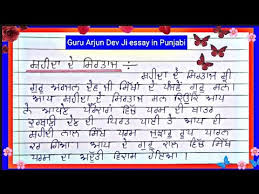 Guru Arjun Dev Ji essay in Punjabi
ਸ਼ਹੀਦਾਂ ਦੇ ਸਿਰਤਾਜ :-
ਸ਼ਹੀਦਾਂ ਦੇ ਸਿਰਤਾਜ ਸ਼੍ਰੀ
ਗੁਰੂ ਅਰਜਨ ਦੇਵ ਜੀ ਸਿੱਖਾਂ ਦੇ ਪੰਜਵੇਂ ਗੁਰੂ ਸਨ।
ਆਪ ਸ਼ਹੀਦਾਂ ਦੇ ਸਿਰਤਾਜ ਸਨ ਕਿਉਂਕਿ ਆਪ
ਨੇ ਆਪਣੇ ਵਿੱਚ ਧਰਮ ਦੀ ਖ਼ਾਤਰ
ਕੁਰਬਾਨੀ ਦੇਣ ਦੀ ਪਾਈ ਤੇ ਆਪ ਦੀ
ਸ਼ਹੀਦੀ ਨਾਲ ਸਿੱਖ ਧਰਮ ਰੂਪ ਧਾਰਨ
ਕਰ ਗਿਆ। ਆਪ ਦੇ ਗੁਰੂ ਕਾਲ ਵਿੱਚ ਸਿੱਖ
ਧਰਮ ਦਾ ਵਿਕਾਸ ਹੋਇਆ।